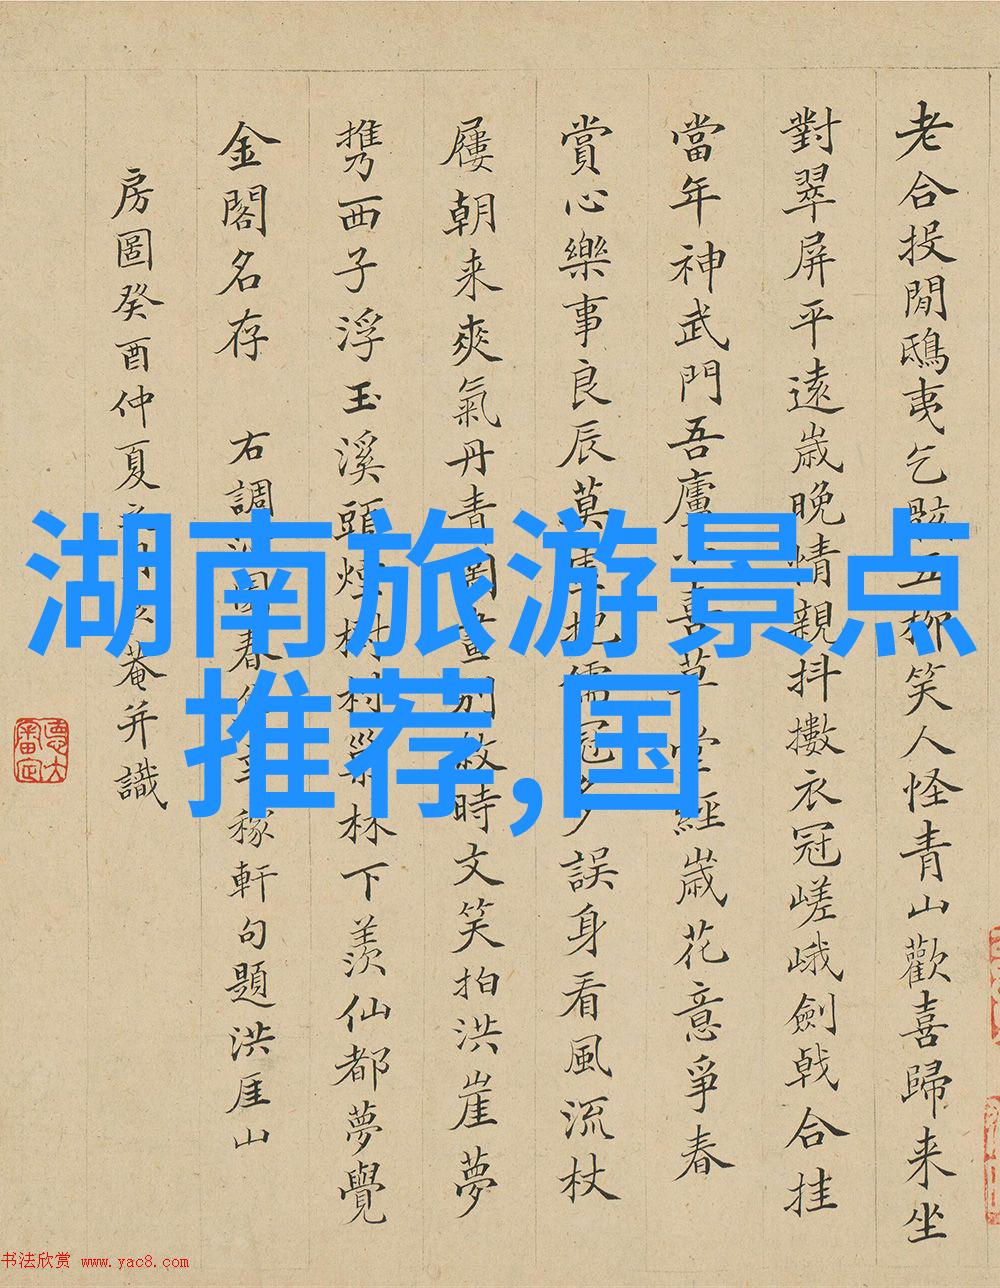 老合投閒鴟夷乞骸五柳笑人怪青山歡喜歸来坐
對翠屏平遠歳晩情親抖擻衣冠嵯峨劍戟合挂
當年神武門吾廬喜草堂經歳花意爭春
賞心樂事良辰莫把儒冠多誤身看風流杖
屨朝来爽氣丹青圖畫別故時文笑拍洪崖夢
携西子浮玉溪頭煙樹村巢林下羨仙都夢覺
金閣名存 右調沁園春集稼軒句題洪厓山
房圖癸酉仲夏菴并識
湖南旅游景点
推荐,国
书法欣赏 www.yac8.com